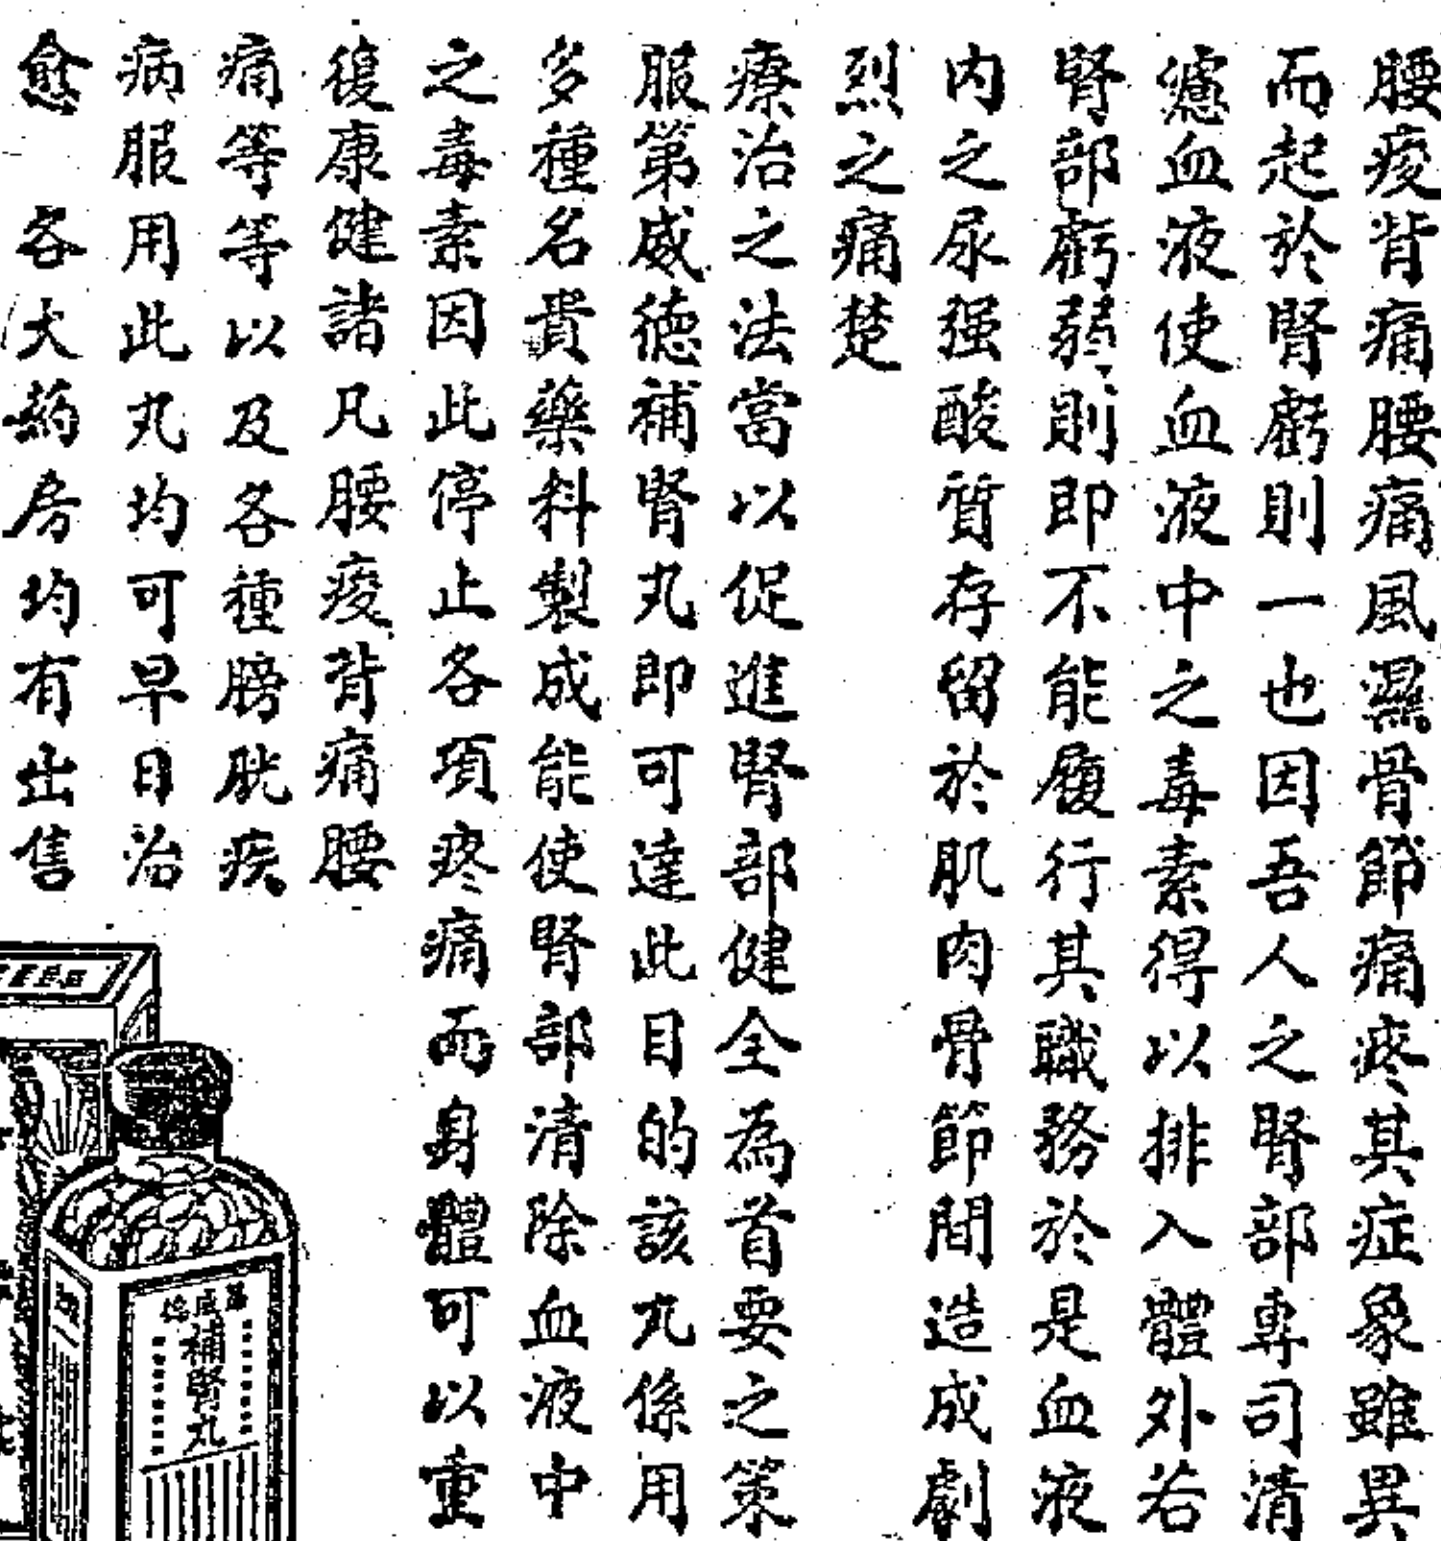 腰痠背痛腰痛風濕骨節痛疼其症象雖異
而起於腎虧則一也因吾人之腎部專司清
濾血液使血液中之毒素得以排入體外若
腎部虧弱則即不能履行其職務於是血液
內之尿强酸質存留於肌肉骨節間造成劇
烈之痛楚
療治之法當以促進腎部健全為首要之策
服第威德補腎丸即可達此目的該丸係用
多種名貴藥料製成能使腎部清除血液中
之毒素因此停止各項疼痛而身體可以重
復康健諸凡腰痠背痛腰
痛等等以及各種膀胱疾
病服用此丸均可早日治
愈　各大葯房均有出售
第威德
補腎丸